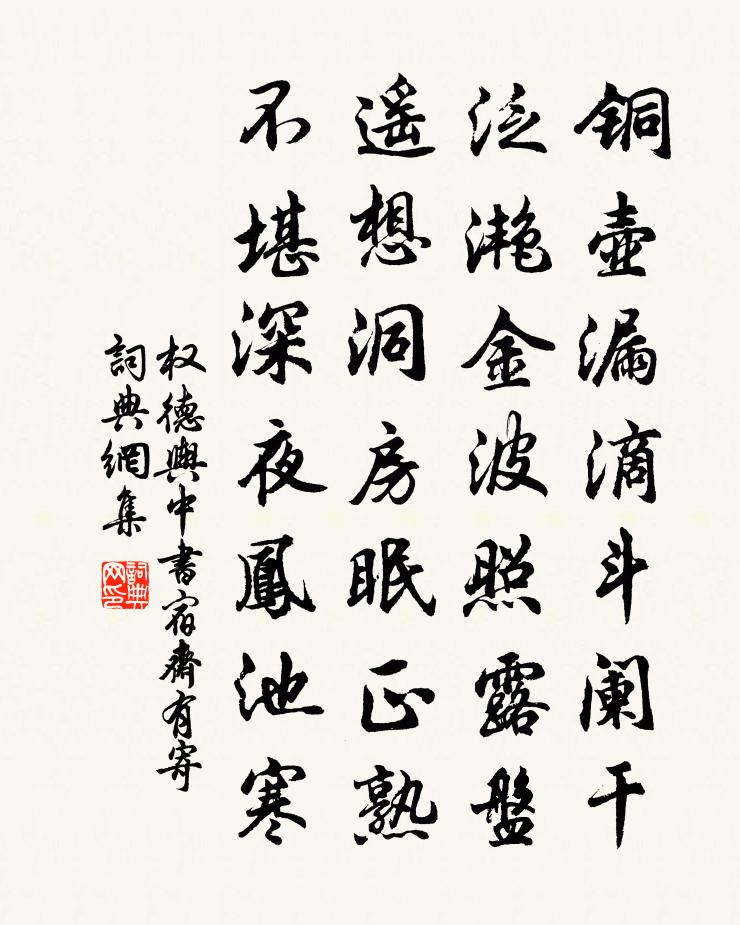 铜壶漏滴斗阑干
泛滟金波照露盤
遥想洞房眠正熟
不堪深夜鳳池寒
权德輿中書宿齋有寄
詞典網集
詞典网印